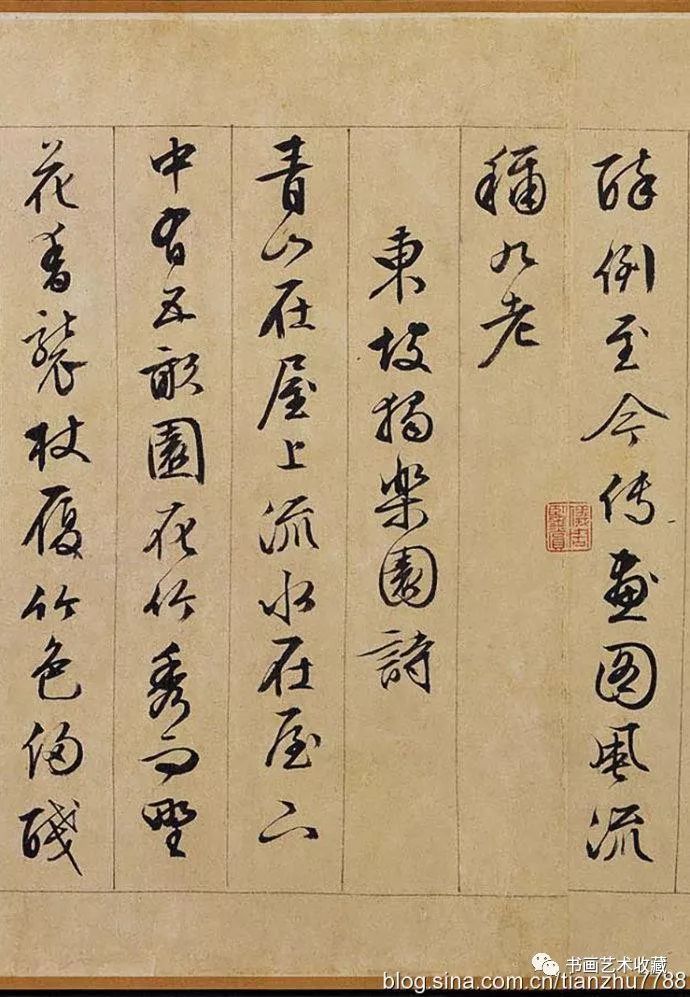 醉倒至今传画图风流
称九老
東坡獨樂園詩
青山在屋上流水在屋下
中有五畝園花竹秀而野
花香襲杖屨竹色侵醆
书画艺术收藏
blog.sina.com.cn/tianzhu7788